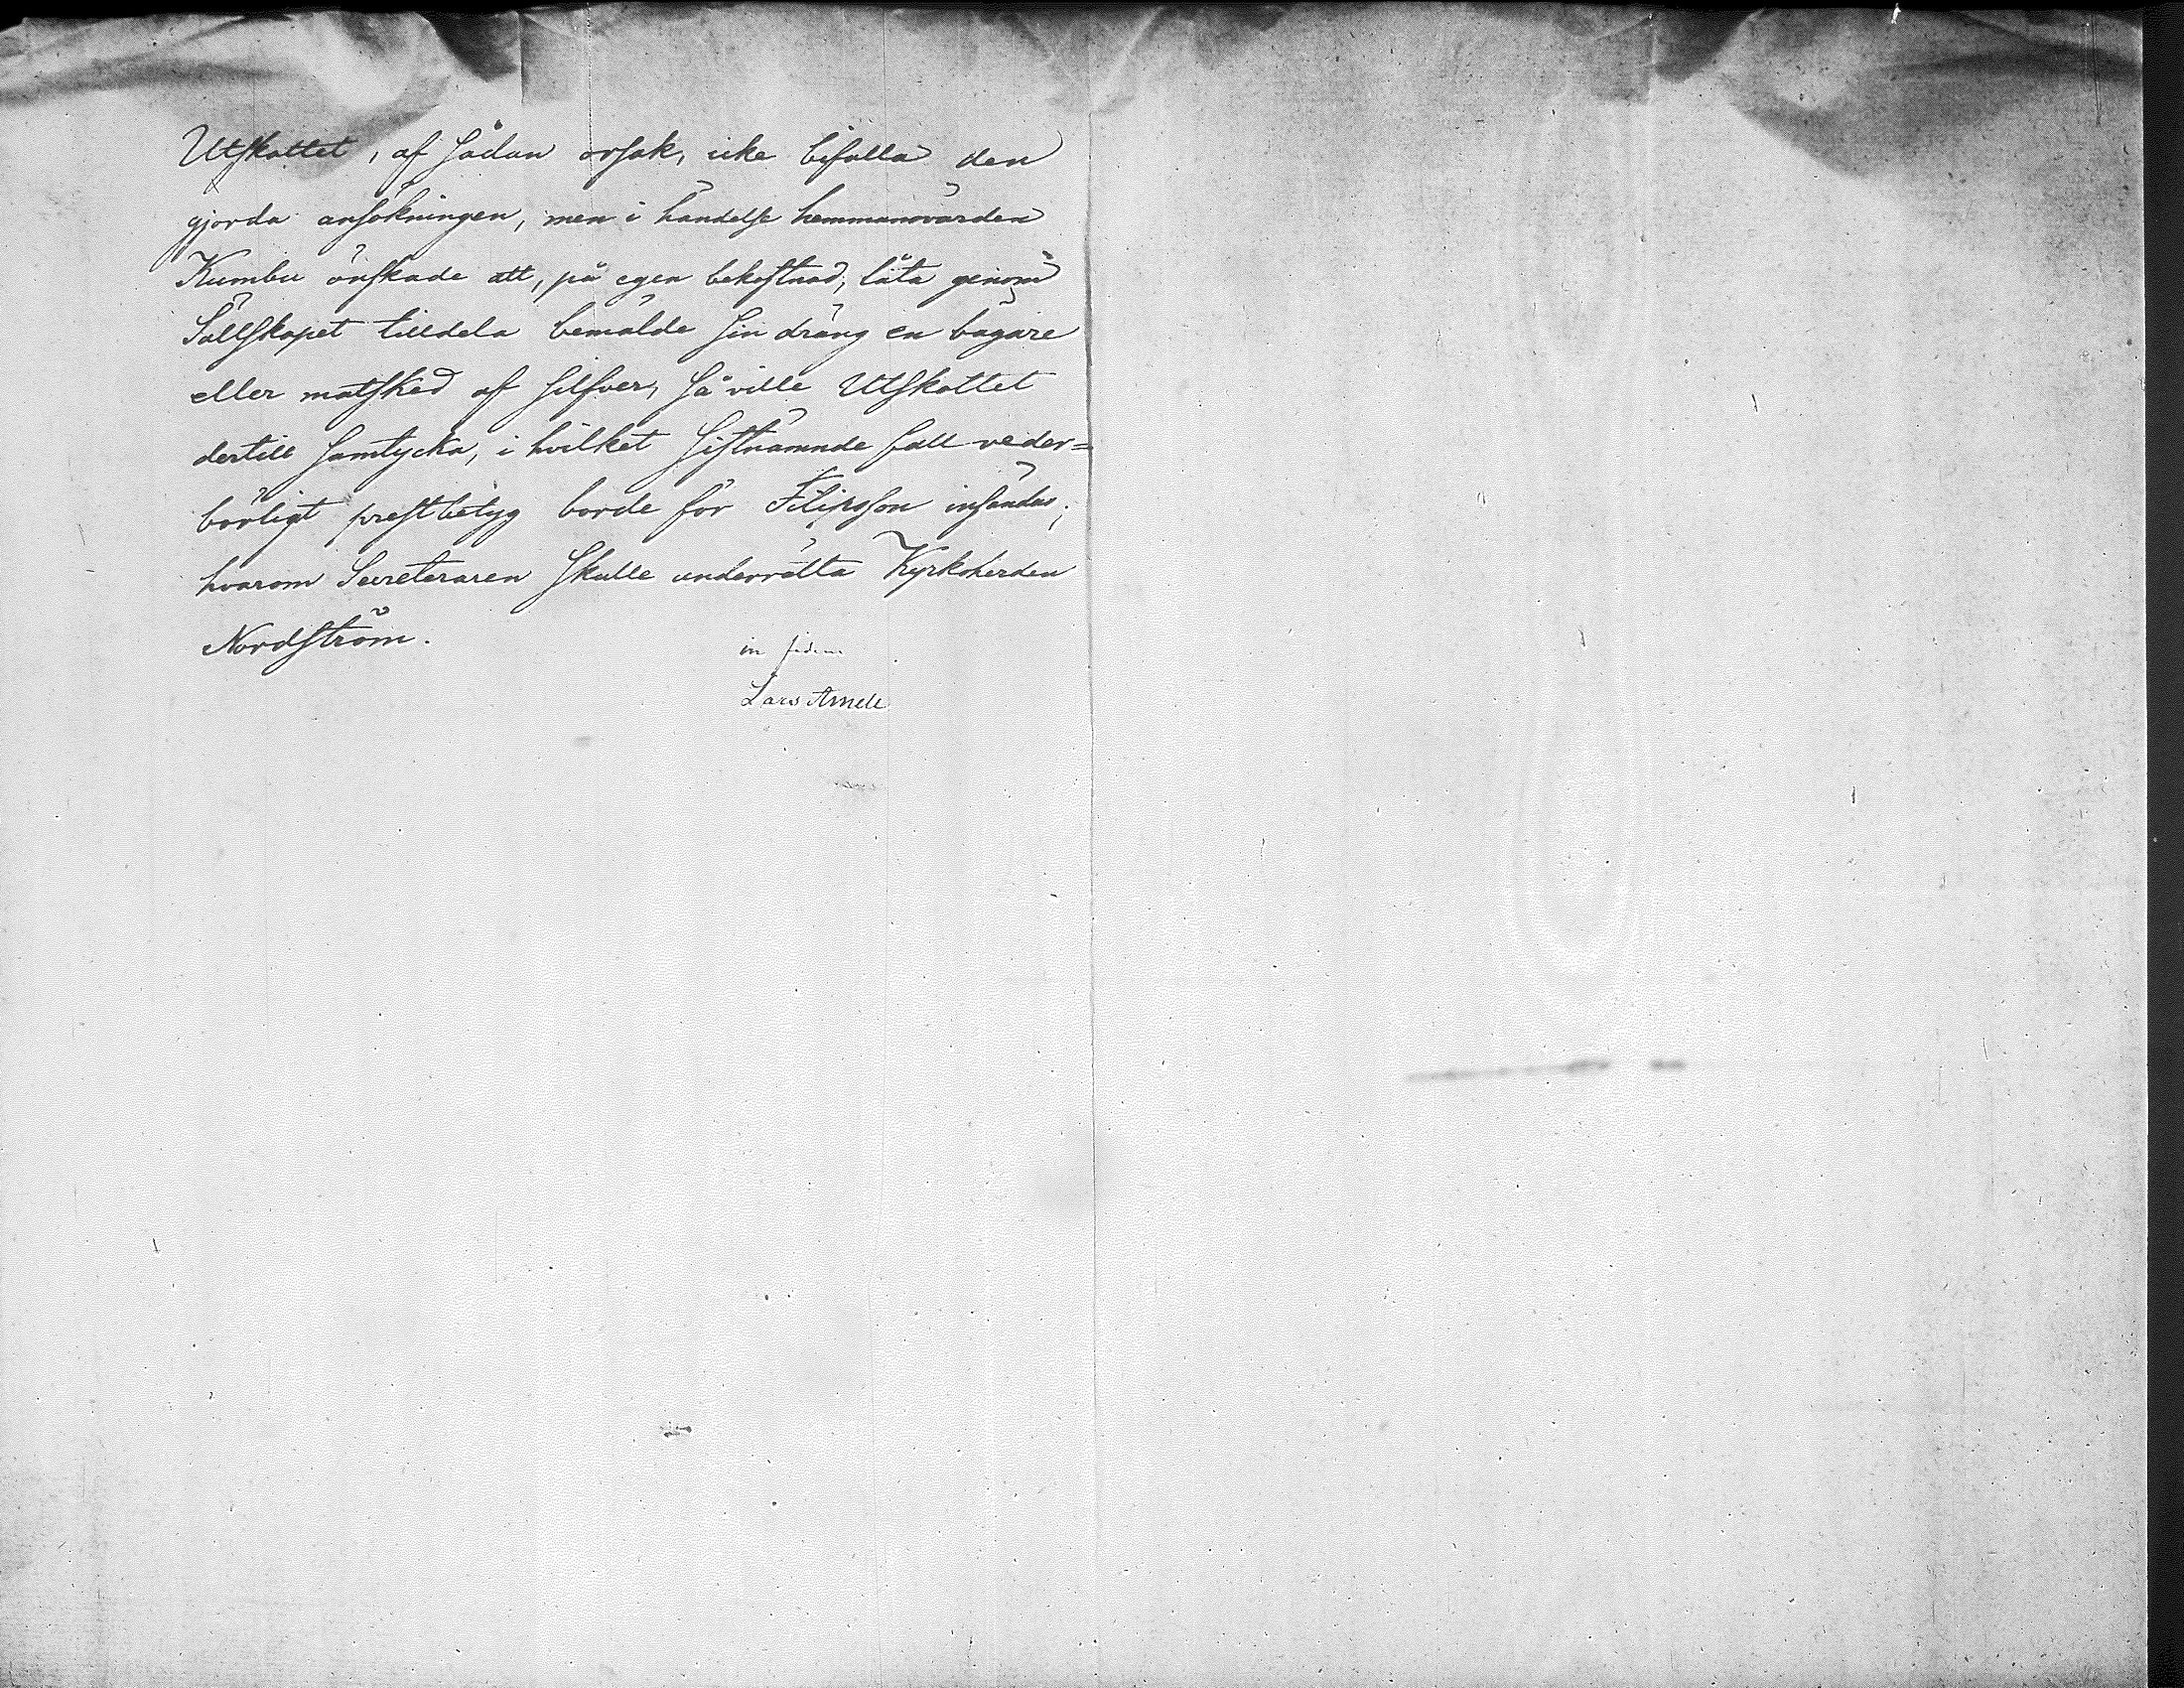 Utskottet, af sådan orsak, icke bifalla den
gjorda ansökningen, men i händelse hemmansvärden
Kumbu önskade att, på egen bekostnad, låta genom
Sällskapet tilldela bemälde sin dräng en bägare
eller matsked af silfver, så ville Utskottet
dertill samtycka, i hvilket sistnämnde fall veder=
börligt prestbetyg borde för Filipsson insändas;
hvarom Secreteraren skulle underrätta Kyrkoherden
Nordström.
in fidem
Lars Arnell